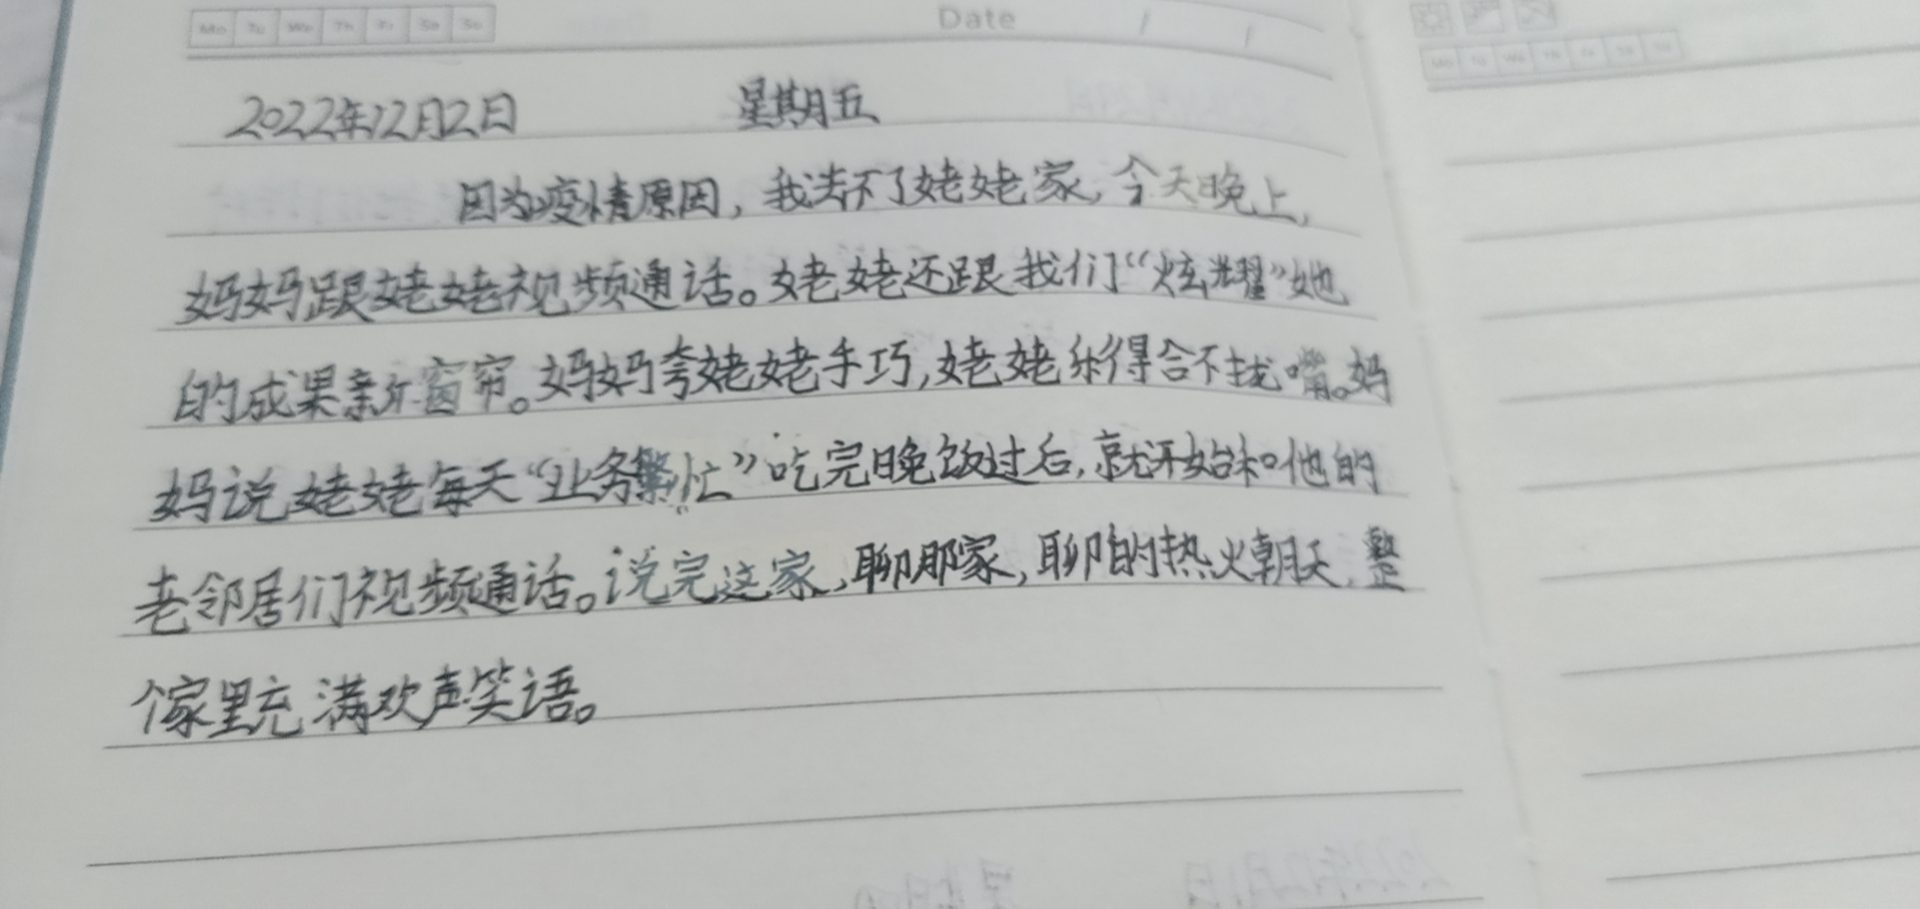 Mo Tu We Th Fr Sa Su
Date / /
2022年12月2日 星期五
因为疫情原因，我去不了姥姥家，今天晚上，
妈妈跟姥姥视频通话。姥姥还跟我们“炫耀”她
的成果新窗帘。妈妈夸姥姥手巧，姥姥乐得合不拢嘴。妈
妈说姥姥每天“业务繁忙”吃完晚饭过后，就开始和他的
老邻居们视频通话。说完这家，聊那家，聊的热火朝天，整
个家里充满欢声笑语。